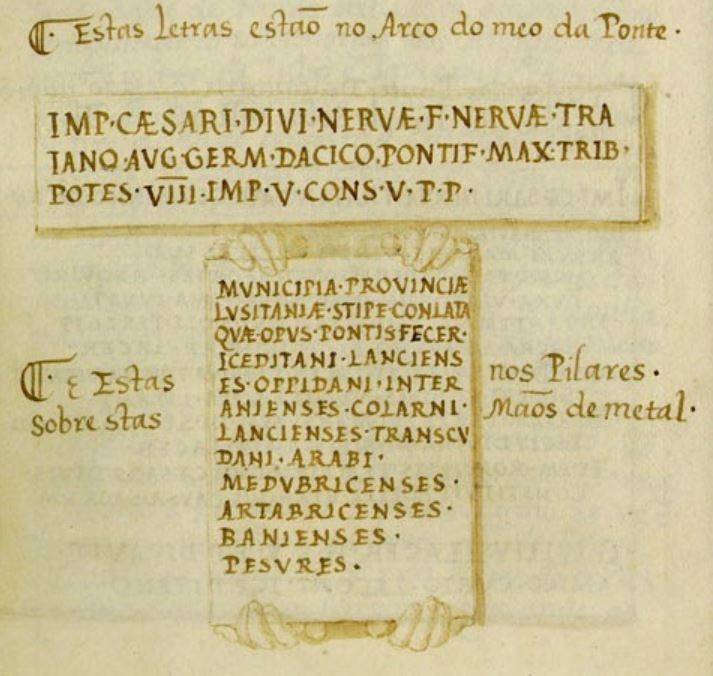 ¶. Estas letras estaõ no Arco do meo da Ponte.
IMP·CÆSARI·DIVI·NERVÆ·F·NERVÆ·TRA
IANO·AVG·GERM·DACICO·PONTIF·MAX·TRIB·
POTES·VIIII·IMP·V·CONS·V·P·P·
MVNICIPIA·PROVINCIÆ
LVSITANIÆ·STIPE·CONLATA
QVÆ·OPVS·PONTIS·FECER·
ICEDITANI·LANCIENS
ES·OPPIDANI·INTER
ANIENSES·COLARNI·
LANCIENSES·TRANSCV
DANI·ARABI·
MEDVBRICENSES·
ARTABRICENSES·
BANIENSES·
PESVRES·
¶. E Estas nos Pilares.
sobre stas Maõs de metal.